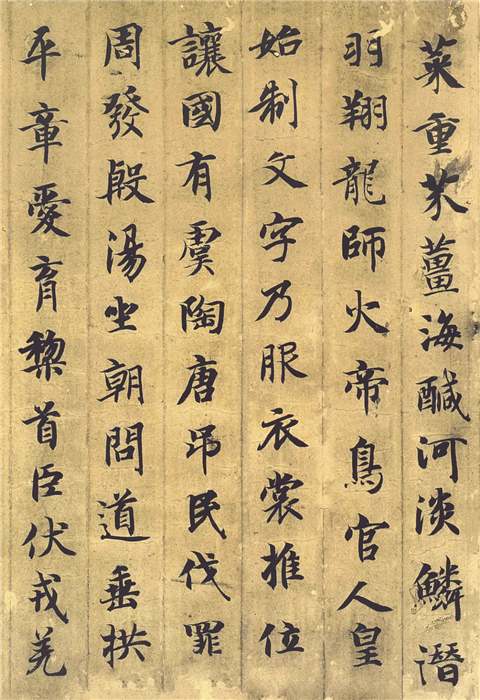 菜重芥薑海醎河淡鱗潛
羽翔龍師火帝鳥官人皇
始制文字乃服衣裳推位
讓國有虞陶唐吊民伐罪
周發殷湯坐朝問道垂拱
平章愛育黎首臣伏戎羌